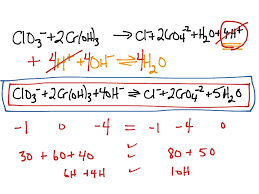 ClO₃⁻ + 2Cr(OH)₃ → Cl⁻ + 2CrO₄⁻² + H₂O + 4H⁺
+ 4H⁺ + 4OH⁻ ⇌ 4H₂O
ClO₃⁻ + 2Cr(OH)₃ + 4OH⁻ ⇌ Cl⁻ + 2CrO₄⁻² + 5H₂O
-1 0 -4 = -1 -4 0
3O + 6O + 4O 8O + 5O
6H + 4H 10H